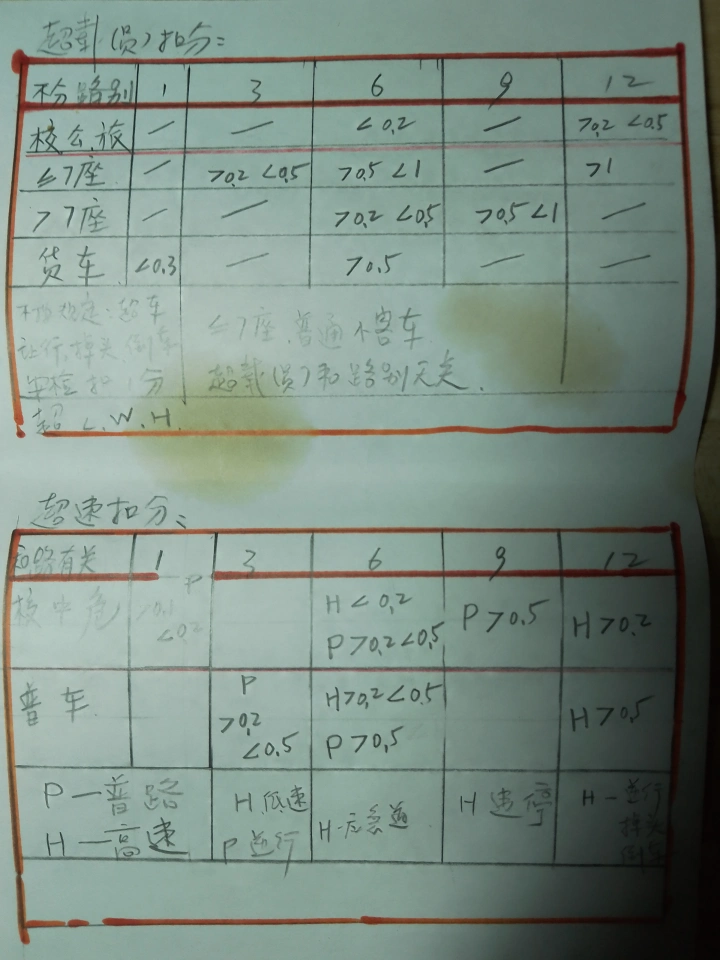 超载(员)扣分:
不分路别 1 3 6 9 12
校.公.旅 — — <0.2 — >0.2 <0.5
≤7座 — >0.2 <0.5 >0.5 <1 — >1
>7座 — — >0.2 <0.5 >0.5 <1 —
货车 <0.3 — >0.5 — —
不按规定:超车
让行,掉头,倒车
年检扣1分
超 L.W.H.
≤7座.普通小客车
超载(员)和路别无关.
超速扣分:
和路有关 1 3 6 9 12
校中危 P
<0.2
H<0.2
P>0.2<0.5
P>0.5
H>0.2
普车
P
>0.2
<0.5
H>0.2<0.5
P>0.5
H>0.5
P—普路
H—高速
H低速
P逆行
H-应急道
H速停
H-逆行
掉头
倒车